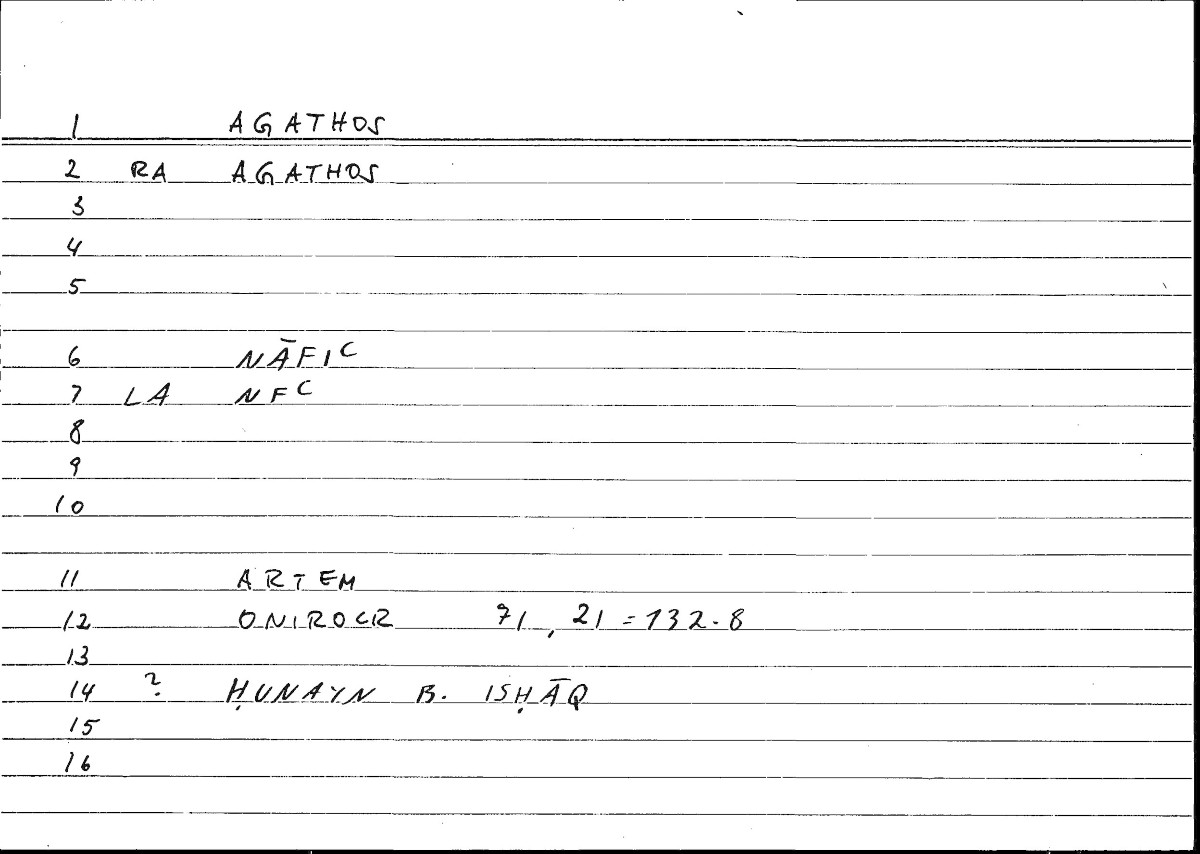 1 AGATHOS
2 RA AGATHOS
3
4
5
6 NĀFIʿ
7 LA NFʿ
8
9
10
11 ARTEM
12 ONIROCR 71, 21 = 132.8
13
14 ? ḤUNAYN B. ISḤĀQ
15
16